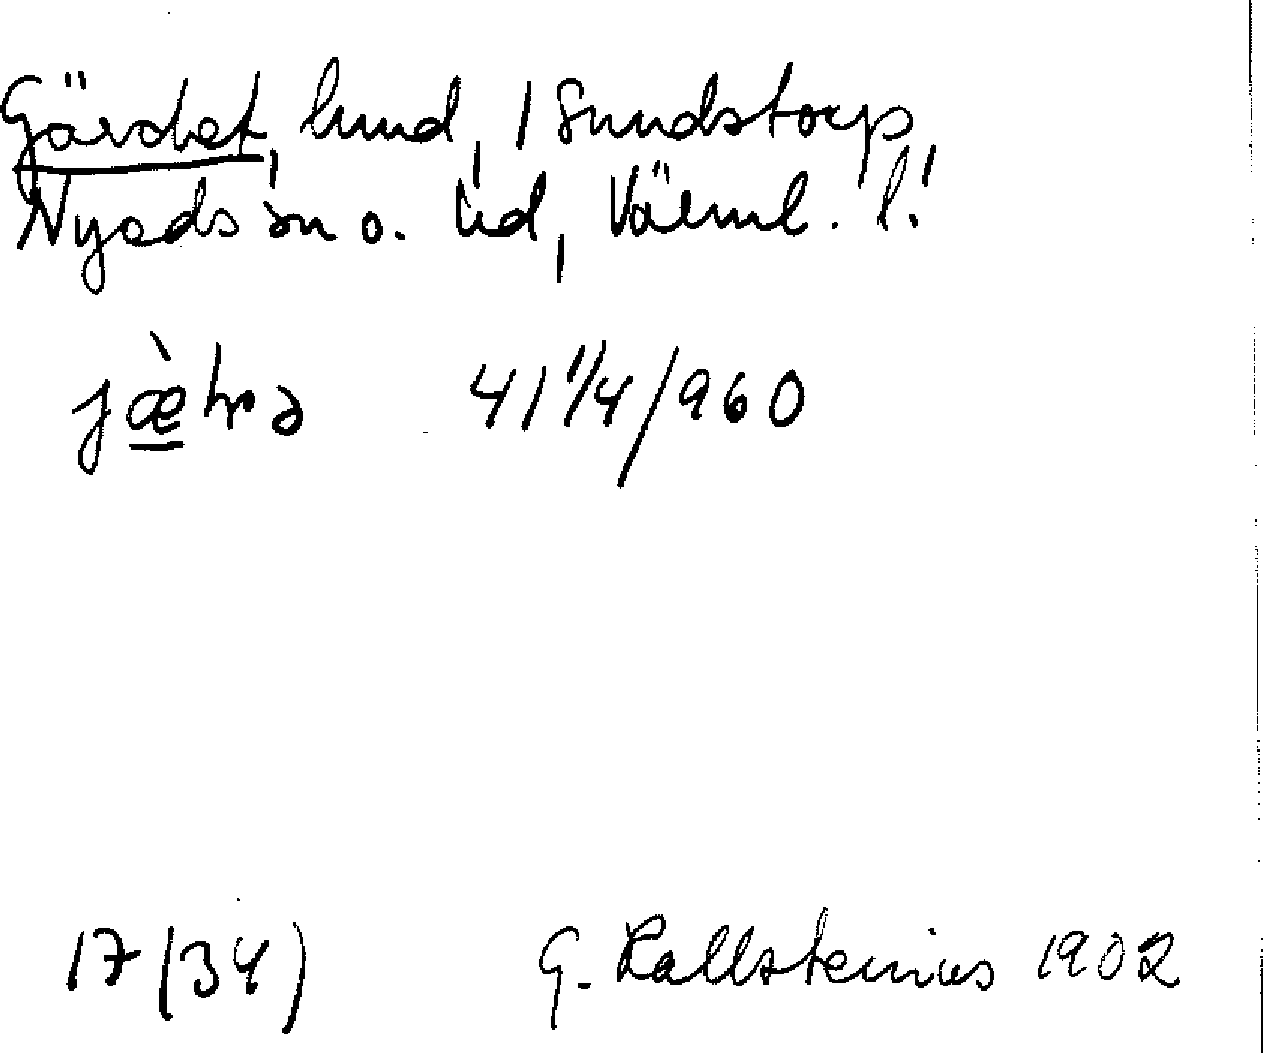 Gärdet, hmd, 1 Sundstorp,
Nyeds sn o. hd, Värml. l.
jæ̀tɹə 41 1/4/960
17 (34) G. Kallstenius 1902